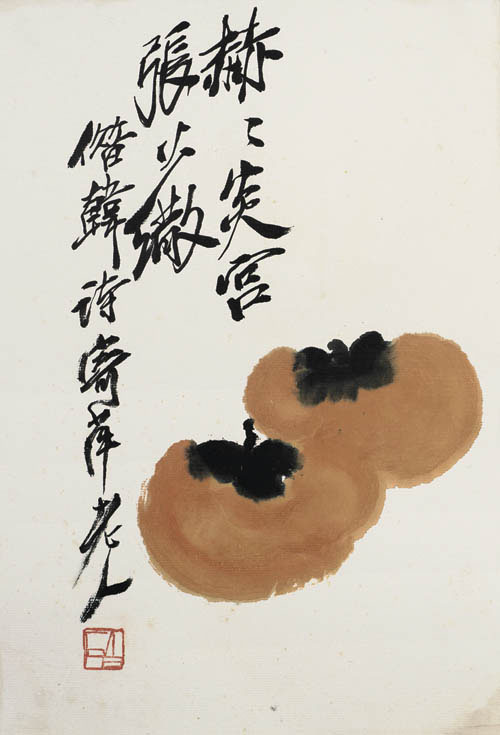 赫〻炎官
張火繖
借韓詩寄萍老人